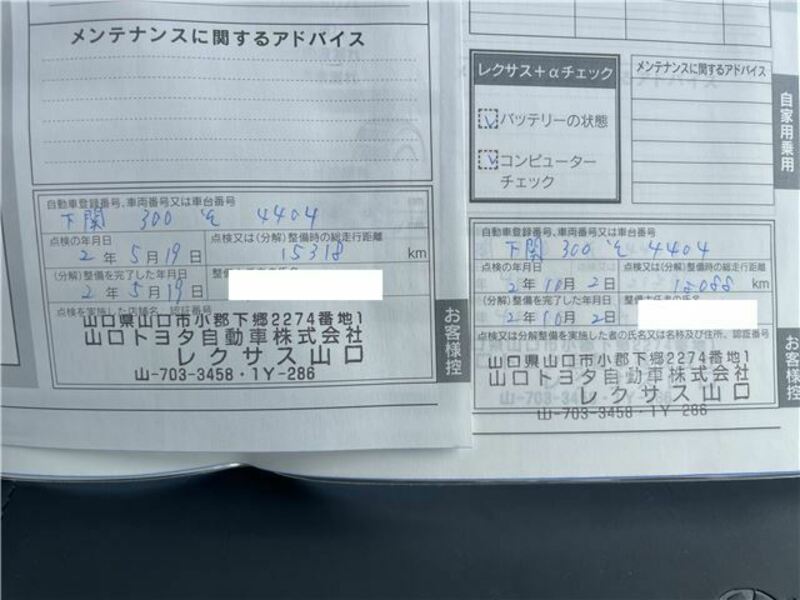 メンテナンスに関するアドバイス
自動車登録番号、車両番号又は車台番号
下関 300 4404
点検の年月日
2年5月19日
点検又は(分解)整備時の総走行距離
15318 km
(分解)整備を完了した年月日
2年5月19日
点検を実施した店舗名、認証番号
山口県山口市小郡下郷2274番地1
山口トヨタ自動車株式会社
レクサス山口
山-703-3458・1Y-286
お客様控
レクサス+αチェック
バッテリーの状態
コンピューター
チェック
メンテナンスに関するアドバイス
自家用乗用
自動車登録番号、車両番号又は車台番号
下関 300 4404
点検の年月日
2年10月2日
点検又は(分解)整備時の総走行距離
km
(分解)整備を完了した年月日
2年10月2日
点検又は分解整備を実施した者の氏名又は名称及び住所、認証番号
山口県山口市小郡下郷2274番地1
山口トヨタ自動車株式会社
レクサス山口
山-703-3458・1Y-286
お客様控